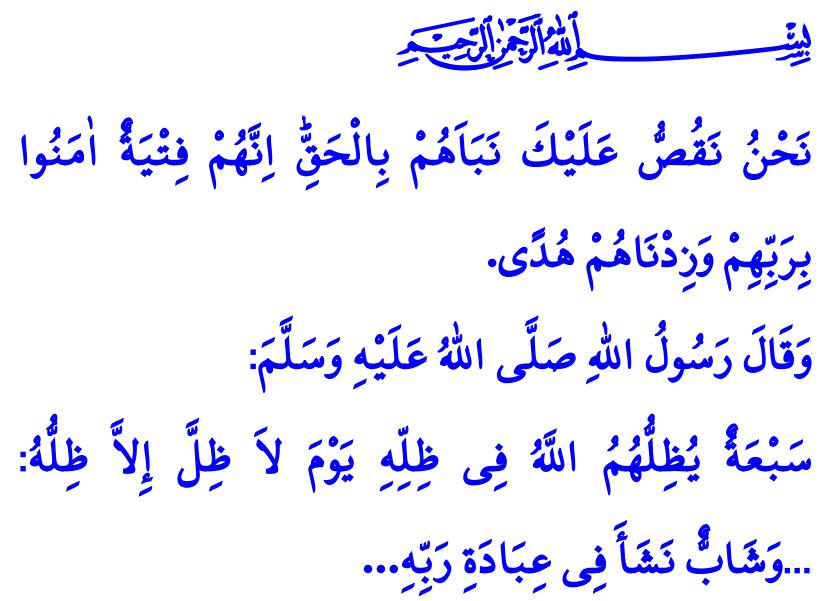 بِسْمِ اللهِ الرَّحْمٰنِ الرَّحِيمِ
نَحْنُ نَقُصُّ عَلَيْكَ نَبَاَهُمْ بِالْحَقِّۜ اِنَّهُمْ فِتْيَةٌ اٰمَنُوا
بِرَبِّهِمْ وَزِدْنَاهُمْ هُدًى.
وَقَالَ رَسُولُ اللهِ صَلَّى اللهُ عَلَيْهِ وَسَلَّمَ:
سَبْعَةٌ يُظِلُّهُمُ اللَّهُ فِى ظِلِّهِ يَوْمَ لاَ ظِلَّ إِلاَّ ظِلُّهُ:
...وَشَابٌّ نَشَأَ فِى عِبَادَةِ رَبِّهِ...